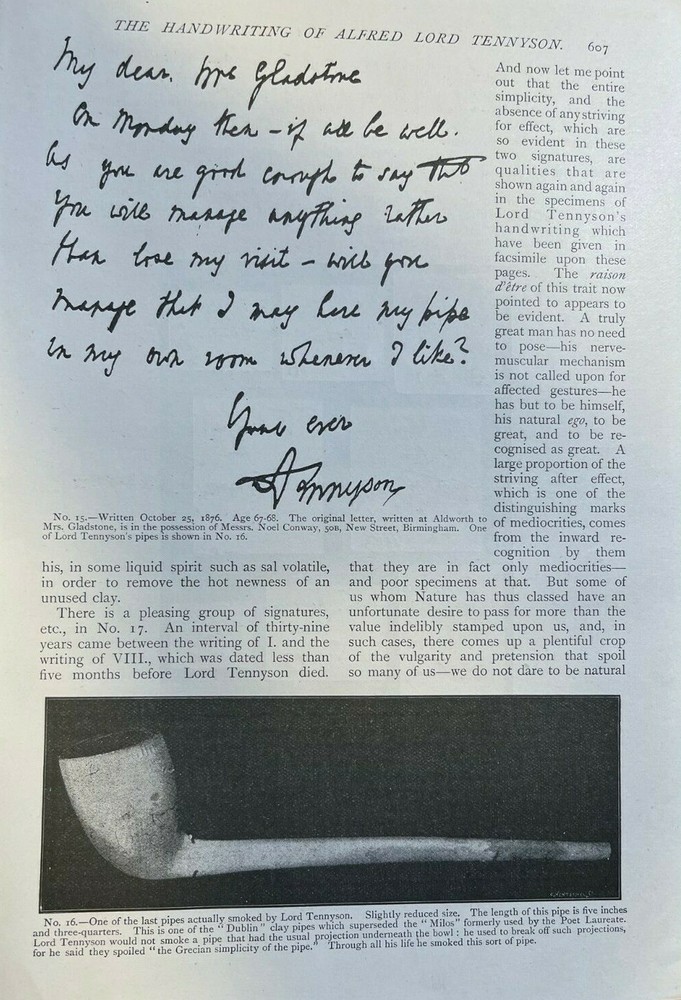 THE HANDWRITING OF ALFRED LORD TENNYSON.
607
My dear Mrs Gladstone
On Monday then – if all be well.
As you are good enough to say that
you will manage anything rather
than lose my visit – will you
manage that I may have my pipe
in my own room whenever I like?
Yours ever
A Tennyson
No. 15.—Written October 25, 1876. Age 67-68. The original letter, written at Aldworth to
Mrs. Gladstone, is in the possession of Messrs. Noel Conway, 50B, New Street, Birmingham. One
of Lord Tennyson's pipes is shown in No. 16.
his, in some liquid spirit such as sal volatile,
in order to remove the hot newness of an
unused clay.
There is a pleasing group of signatures,
etc., in No. 17. An interval of thirty-nine
years came between the writing of I. and the
writing of VIII., which was dated less than
five months before Lord Tennyson died.
And now let me point
out that the entire
simplicity, and the
absence of any striving
for effect, which are
so evident in these
two signatures, are
qualities that are
shown again and again
in the specimens of
Lord Tennyson's
handwriting which
have been given in
facsimile upon these
pages. The raison
d'être of this trait now
pointed to appears to
be evident. A truly
great man has no need
to pose—his nerve-
muscular mechanism
is not called upon for
affected gestures—he
has but to be himself,
his natural ego, to be
great, and to be re-
cognised as great. A
large proportion of the
striving after effect,
which is one of the
distinguishing marks
of mediocrities, comes
from the inward re-
cognition by them
that they are in fact only mediocrities—
and poor specimens at that. But some of
us whom Nature has thus classed have an
unfortunate desire to pass for more than the
value indelibly stamped upon us, and, in
such cases, there comes up a plentiful crop
of the vulgarity and pretension that spoil
so many of us—we do not dare to be natural
No. 16.—One of the last pipes actually smoked by Lord Tennyson. Slightly reduced size. The length of this pipe is five inches
and three-quarters. This is one of the "Dublin" clay pipes which superseded the "Milos" formerly used by the Poet Laureate.
Lord Tennyson would not smoke a pipe that had the usual projection underneath the bowl: he used to break off such projections,
for he said they spoiled "the Grecian simplicity of the pipe." Through all his life he smoked this sort of pipe.